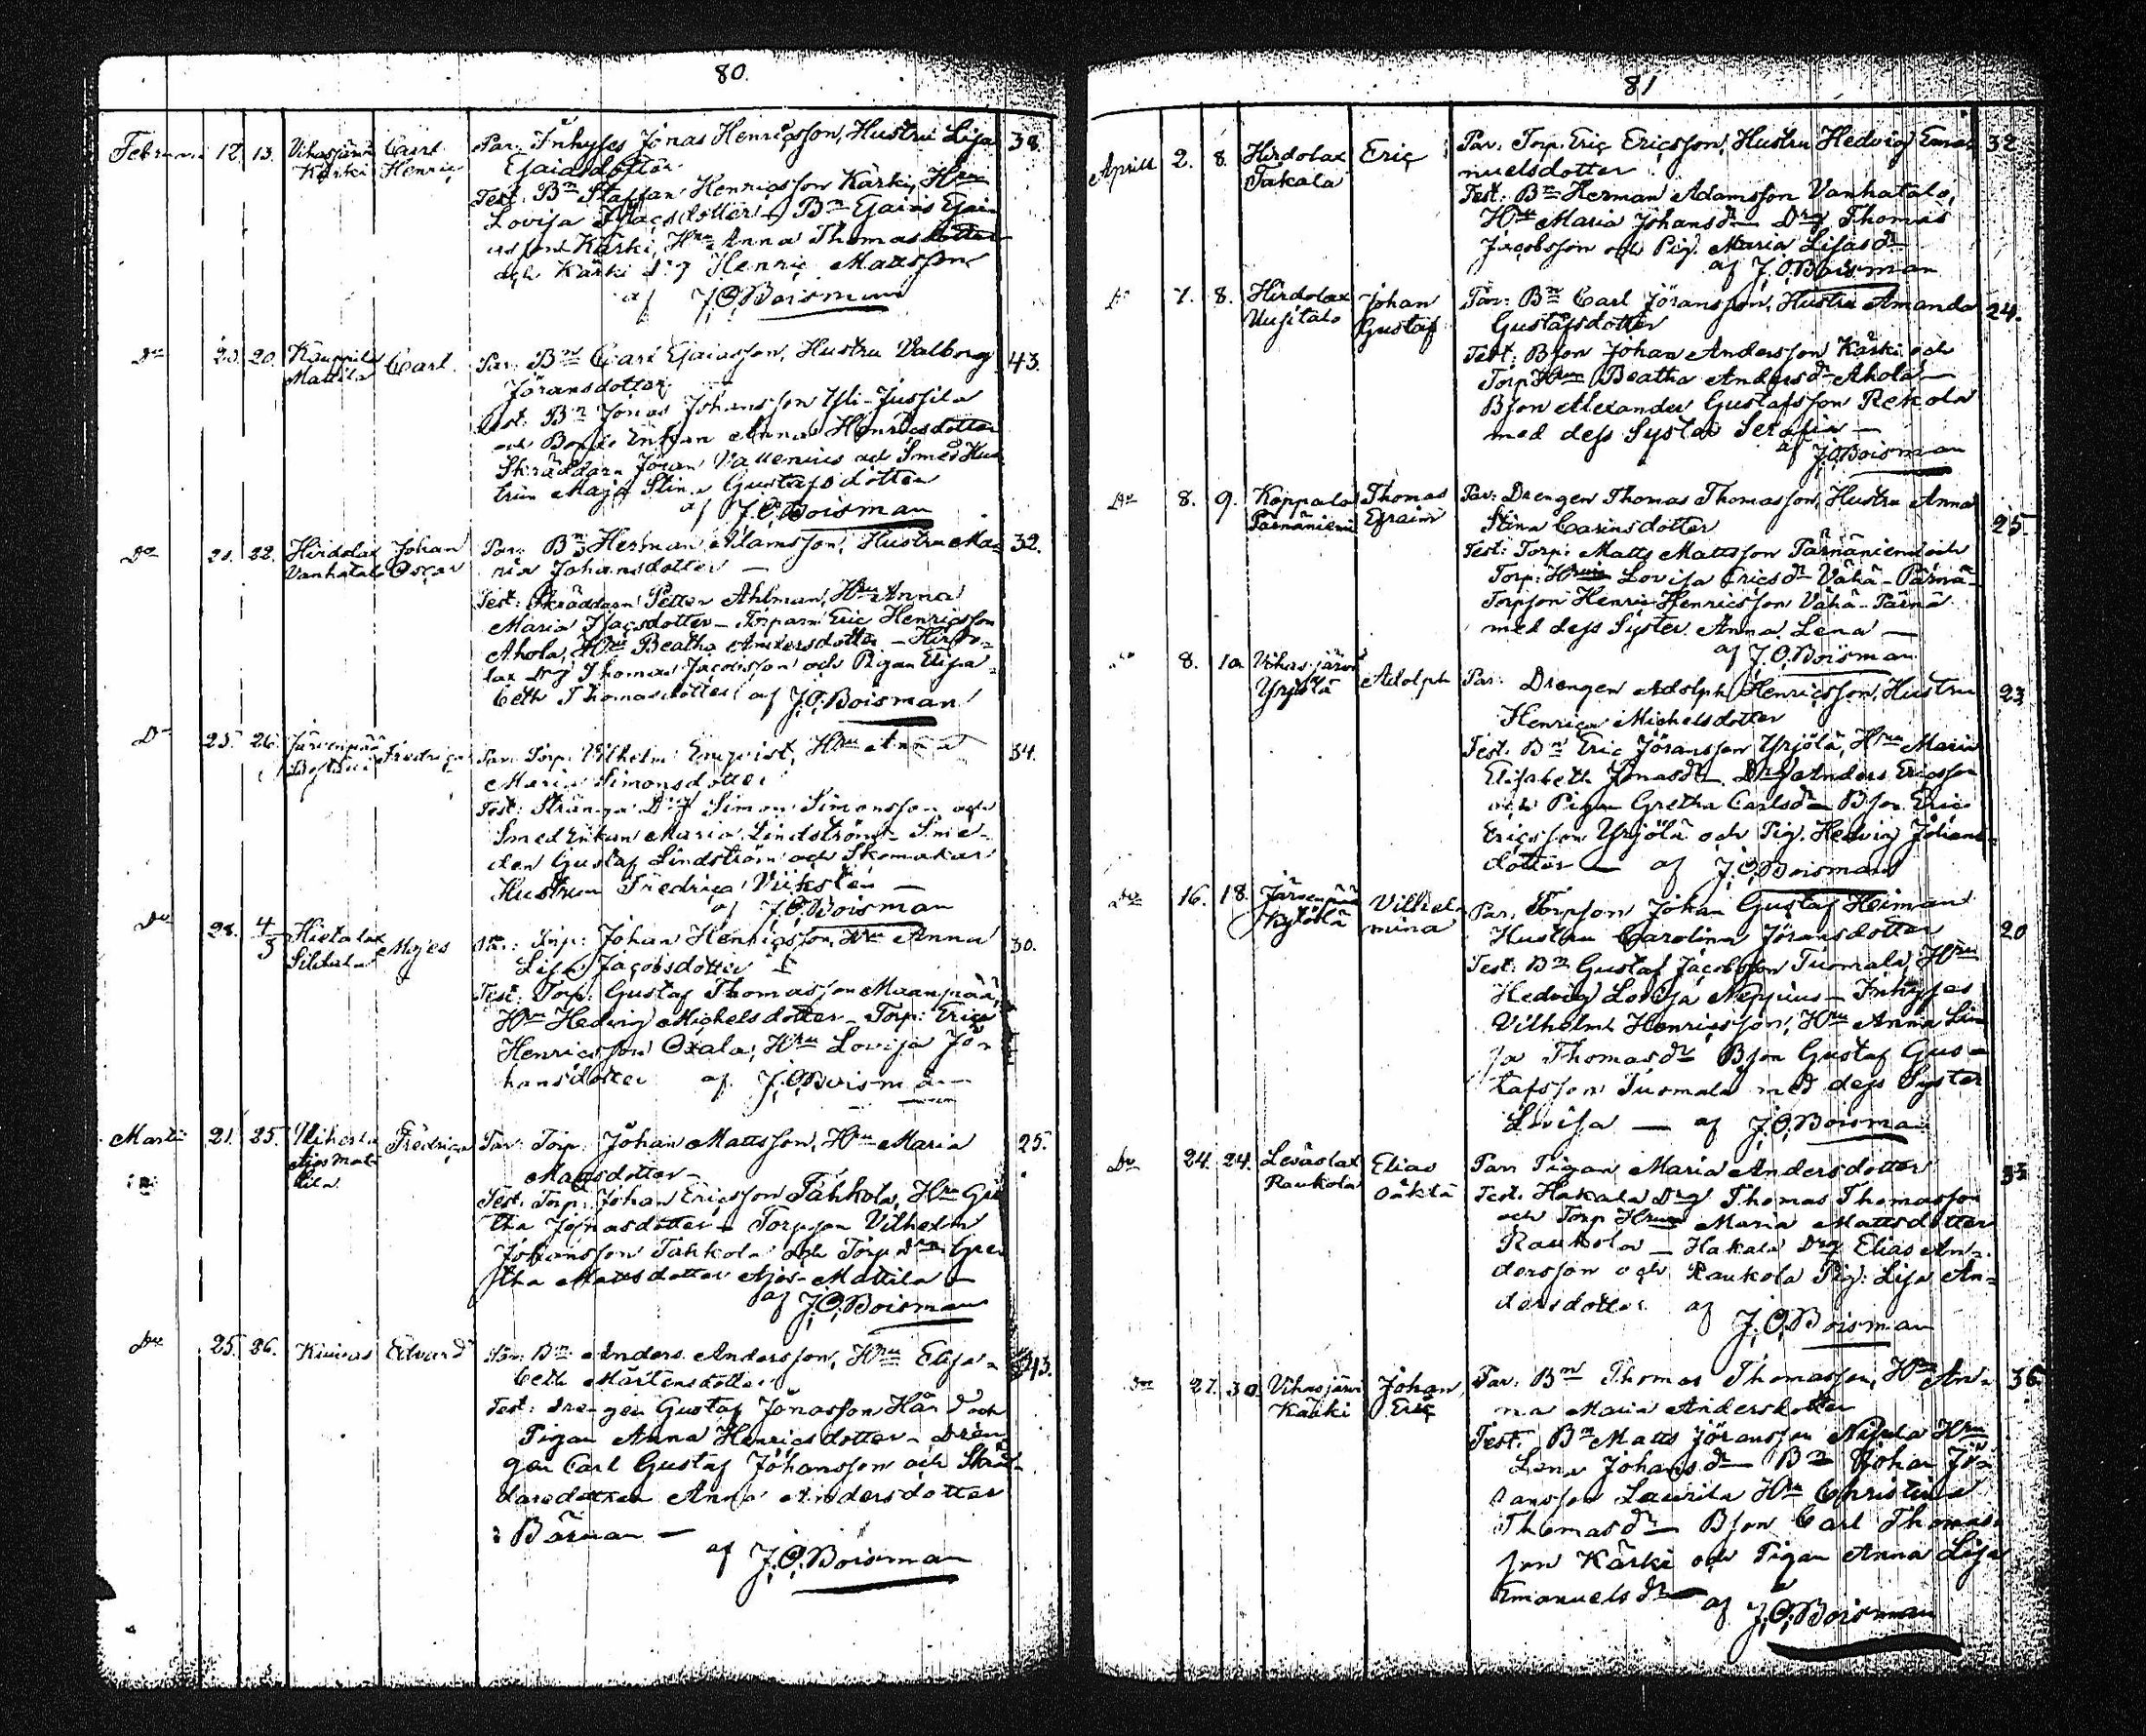 80.
Februarii 12. 13. Vihasjärvi Carl Par: Inhyses Jonas Henricsson, Hustru Lisa 38.
Kärki Henric Esaiædotter
Test: Bn Staffan Henricsson Kärki, Hru
Lovisa Isacsdotter - Bn Esaias Esai-
asson Kärki, Hru Anna Thomasdotter
och Kärki drg Henric Mattsson
af J.O.Boisman
Do 20. 20. Kauppila Carl. Par: Bn Carl Esaiasson, Hustru Valborg 43.
Mattila Jöransdotter
Test: Bn Jonas Johansson Yli-Jussila
och Bonde Enkan Anna Henricsdotter
Skräddarn Jöran Vallenius och Smeds Hus
trun Maja Stina Gustafsdotter
af J.O.Boisman
Do 21. 22. Hirdolax Johan Par: Bn Herman Adamsson, Hustru Ma- 32.
Vanhatalo Oscar ria Johansdotter
Test: Skräddarn Petter Ahlman, Hru Anna
Maria Isacsdotter - Torparn Eric Henricsson
Ahola, Hru Beatha Andersdotter - Hirdo-
lax Drg Thomas Jacobsson och Pigan Elisa-
beth Thomasdotter af J.O.Boisman
Do 25. 26. Järvenpää Fredrica Par: Torp: Vilhelm Enqvist, Hru Anna 34.
Maria Simonsdotter
Test: Stränga Drg Simon Simonsson och
Smed Enkan Maria Lindström - Sme-
den Gustaf Lindström och Skomakar
Hustrun Fredrica Viikstén
af J.O.Boisman
Do 28. 4/3 Hietalax Moses Par: Torp: Johan Henricsson, Hru Anna 30.
Lisa Jacobsdotter
Test: Torp: Gustaf Thomasson Maanpää,
Hru Hedvig Michelsdotter - Torp: Eric
Henricsson Oxala, Hru Lovisa Jo-
hansdotter af J.O.Boisman
Martii 21. 25. Fredrica Par: Torp: Johan Mattsson, Hru Maria 25.
Ajos Mat-
tila Mattsdotter
Test: Torp: Johan Ericsson Tahkola, Hru Gre
tha Jonasdotter - Torpson Vilhelm
Johansson Tahkola och Torp dr Gre
tha Mattsdotter Ajos-Mattila
af J.O.Boisman
Do 25. 26. Kuivas Edvard Par: Bn Anders Andersson, Hru Elisa- 43.
beth Mårtensdotter
Test: Drengen Gustaf Jonasson Hård och
Pigan Anna Henricsdotter - Dren
gen Carl Gustaf Johansson och Skräd-
daredottren Anna Andersdotter
Bärman
af J.O.Boisman
81
Aprill 2. 8. Hirdolax Eric Par: Torp: Eric Ericsson, Hustru Hedvig Ema- 32
Takala nuelsdotter
Test: Bn Herman Adamsson Vanhatalo,
Hru Maria Johansdr - Drg Thomas
Jacobsson och Pig. Maria Lisasdr
af J.O.Boisman
Do 7. 8. Hirdolax Johan Par: Bn Carl Jöransson, Hustru Amanda 24.
Uusitalo Gustaf Gustafsdotter
Test: Bson Johan Andersson Kärki och
Torp Hrun Beatha Andersdr Ahola
Bson Alexander Gustafsson Rekola
med dess Syster Serafia
af J.O.Boisman
Do 8. 9. Koppala Thomas Par: Drengen Thomas Thomasson, Hustru Anna 25
Pärnäniemi Efraim Stina Carinsdotter
Test: Torp: Matts Mattsson Pärnäniemi och
Torp: Hrun Lovisa Ericsdr Vähä-Pärnä -
Torpson Henric Henricsson Vähä-Pärnä
med dess Syster Anna Lena
af J.O.Boisman
8. 10. Vihasjärvi Adolph Par: Drengen Adolph Henricsson, Hustru 23
Yrjölä Henrica Michelsdotter
Test: Bn Eric Jöransson Yrjölä, Hru Maria
Elisabeth Jonasdr - Drg Anders Ericsson
och Pigan Gretha Carlsdr - Bson Eric
Ericsson Yrjölä och Pig. Hedvig Johans-
dotter af J.O.Boisman
Do 16. 18. Järvenpää Vilhel- Par: Torpson Johan Gustaf Heiman 20
Kytölä mina Hustru Carolina Jöransdotter
Test: Bn Gustaf Jacobsson Tuomala, Hru
Hedvig Lovisa Neppius - Inhyses
Vilhelm Henricsson, Hru Anna Li-
sa Thomasdr Bson Gustaf Gus-
tafsson Tuomala med dess Syster
Lovisa af J.O.Boisman
Do 24. 24. Leväslax Elias Par: Pigan Maria Andersdotter 33
Raukola oäkta Test: Hakala Drg Thomas Thomasson
och Torp Hrun Maria Mattsdotter
Raukola - Hakala Drg Elias An-
dersson och Raukola Pig: Lisa An-
dersdotter af
J.O.Boisman
Do 27. 30. Vihasjärvi Johan Par: Bn Thomas Thomasson, Hru An- 36
Kärki Eric na Maria Andersdotter
Test: Bn Matts Jöransson Hru
Lena Johansdr - Bn Johan Jö-
ransson Laurila Hru Christina
Thomasdr - Bson Carl Thomas-
son Kärki och Pigan Anna Lisa
Emanuelsdr af J.O.Boisman